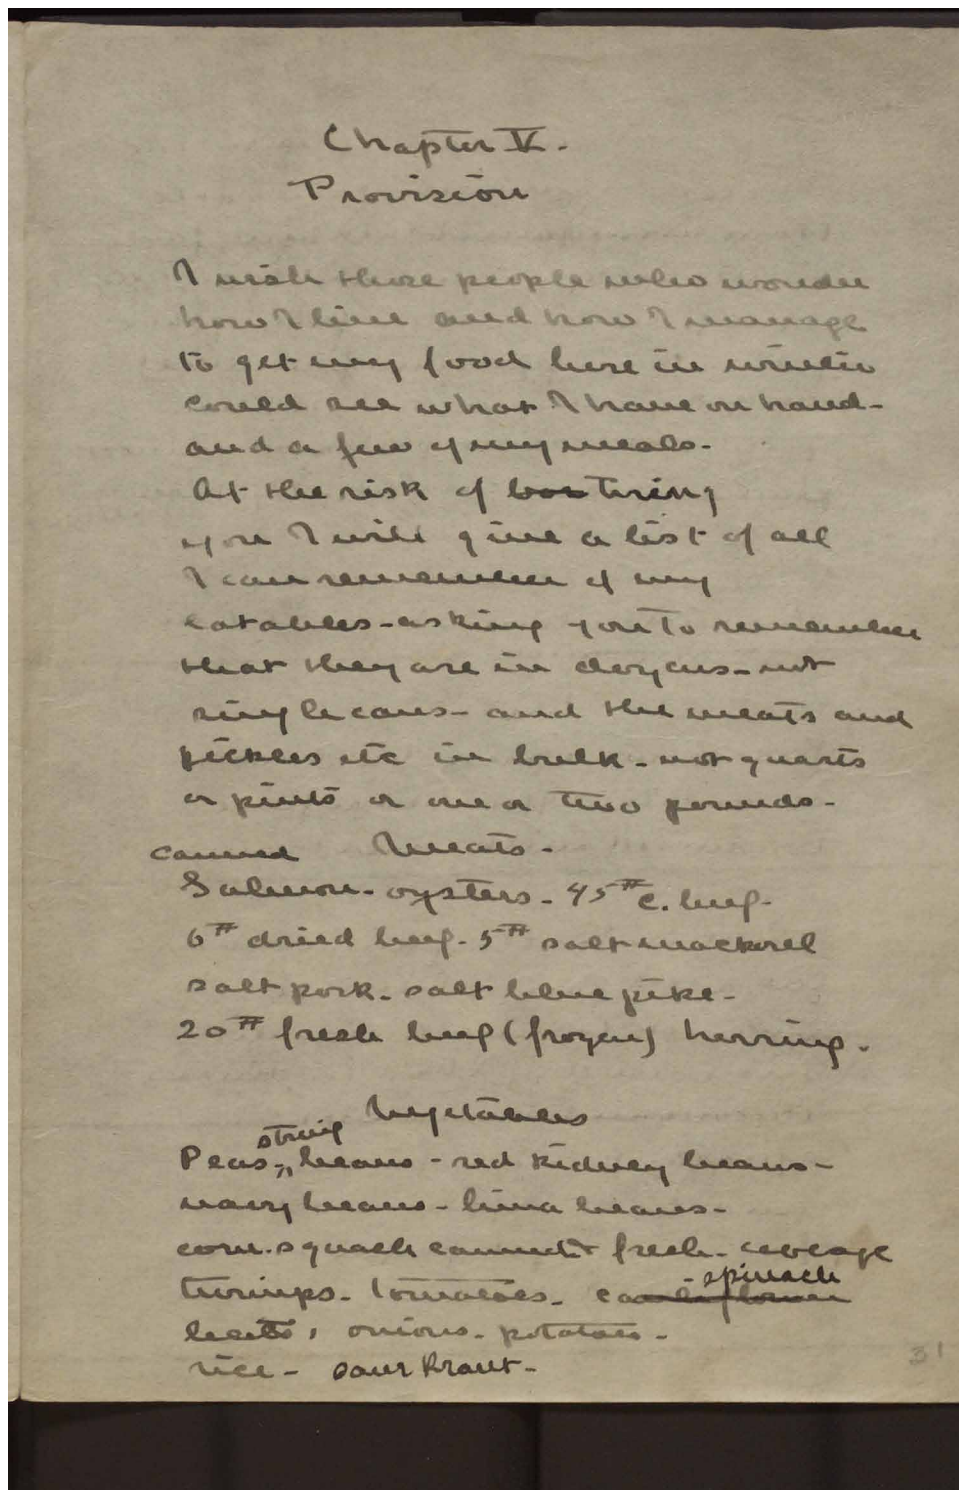 Chapter V.
Provision
I wish those people who wonder
how I live and how I manage
to get my food here in winter
could see what I have on hand-
and a few of my meals-
At the risk of tiring
you I will give a list of all
I can remember of my
eatables-asking you to remember
that they are in dozens-not
single cans- and the meats and
pickles etc in bulk-not quarts
or pints or one or two pounds-
canned Meats-
Salmon-oysters-45# c. beef-
6# dried beef-5# salt mackerel
salt pork-salt blue pike-
20# fresh beef (frozen) herring.
Vegetables
string
Peas-, beans-red kidney beans-
navy beans-lima beans-
corn-squash canned & fresh-cabbage
-spinach
turnips-tomatoes-cauliflower
beets, onions-potatoes-
rice-saur kraut-
31